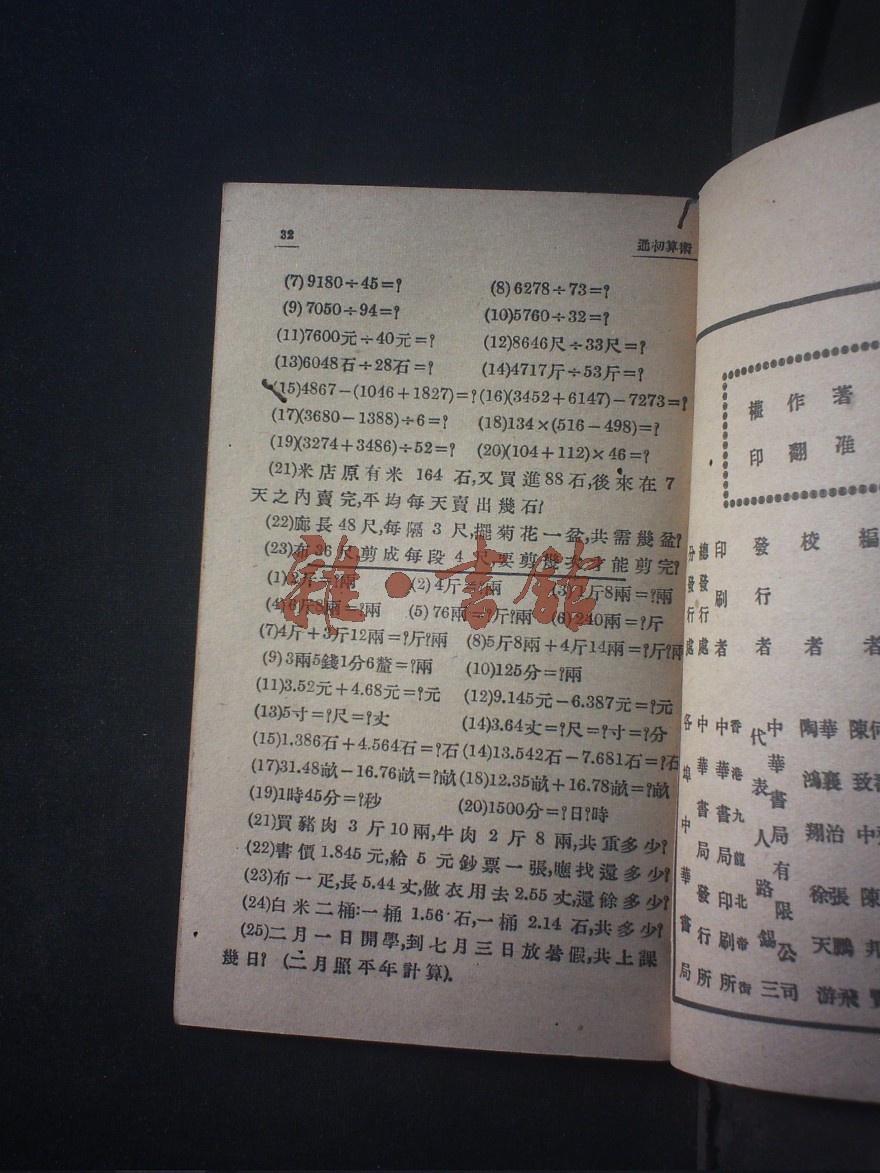 32
通初算術
(7) 9180÷45=? (8) 6278÷73=?
(9) 7050÷94=? (10)5760÷32=?
(11)7600元÷40元=? (12)8646尺÷33尺=?
(13)6048石÷28石=? (14)4717斤÷53斤=?
(15)4867-(1046+1827)=? (16)(3452+6147)-7273=?
(17)(3680-1388)÷6=? (18)134×(516-498)=?
(19)(3274+3486)÷52=? (20)(104+112)×46=?
(21)米店原有米 164 石,又買進88石,後來在 7
天之內賣完,平均每天賣出幾石?
(22)廊長48尺,每隔 3 尺,擺菊花一盆,共需幾盆?
(23)布36尺,剪成每段 4 尺要剪幾次才能剪完?
(1)2斤=?兩 (2)4斤=?兩 (3)1斤8兩=?兩
(4)6斤8兩=?兩 (5)76兩=?斤?兩 (6)240兩=?斤
(7)4斤+3斤12兩=?斤?兩 (8)5斤8兩+4斤14兩=?斤?兩
(9)3兩5錢1分6釐=?兩 (10)125分=?兩
(11)3.52元+4.68元=?元 (12)9.145元-6.387元=?元
(13)5寸=?尺=?丈 (14)3.64丈=?尺=?寸=?分
(15)1.386石+4.564石=?石 (14)13.542石-7.681石=?石
(17)31.48畝-16.76畝=?畝 (18)12.35畝+16.78畝=?畝
(19)1時45分=?秒 (20)1500分=?日?時
(21)買豬肉 3 斤10兩,牛肉 2 斤 8 兩,共重多少?
(22)書價1.845元,給 5 元鈔票一張,應找還多少?
(23)布一疋,長5.44丈,做衣用去2.55丈,還餘多少?
(24)白米二桶:一桶 1.56 石,一桶 2.14 石,共多少?
(25)二月一日開學,到七月三日放暑假,共上課
幾日? (二月照平年計算).
雜·書館
著作權
准翻印
編者
校者 陶鴻翔 華襄治 徐天游 張鵬飛
發行者 中華書局有限公司
代表人 路錫三
印刷者 中華書局印刷所
香港九龍北帝街
總發行處 中華書局發行所
分發行處 各埠中華書局